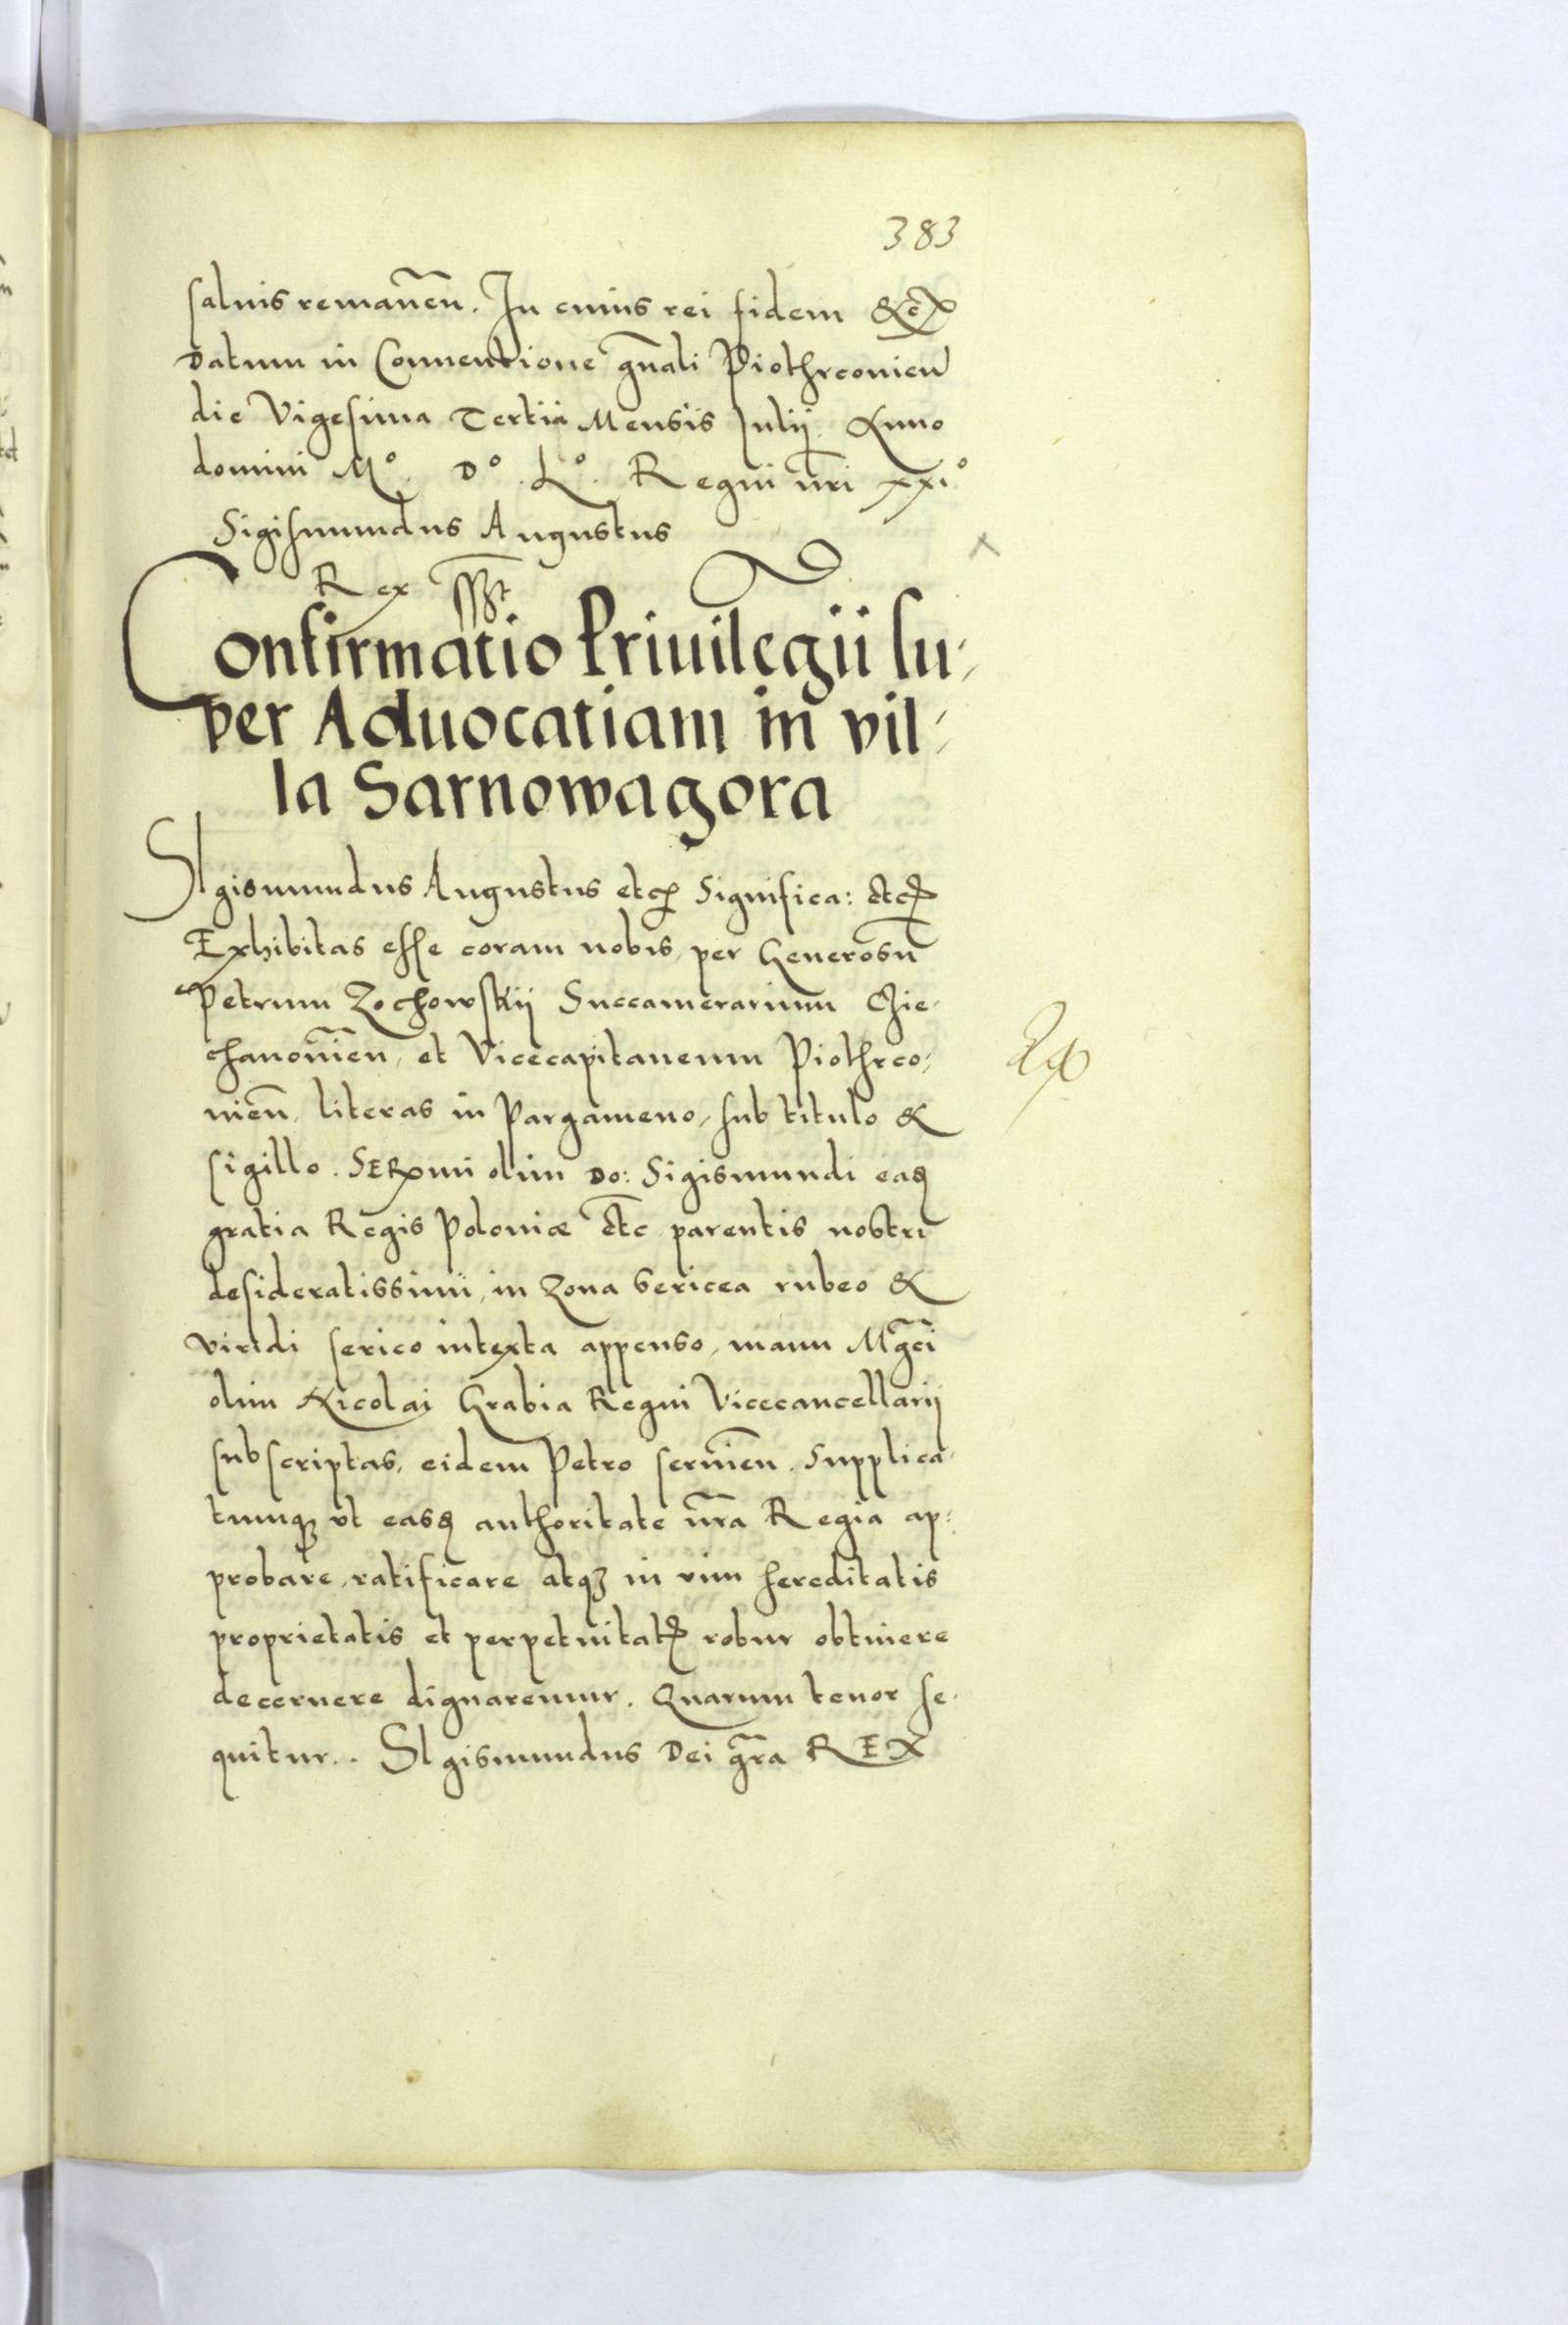 383
saluis remaneñ. In cuius rei fidem &c
Datum in Conuentione gnali Piothrcouieñ
die Vigesima Tertia Mensis Iulij Anno
domini Mº. Dº. Lº. Regni nri xxiº
Sigismundus Augustus
Rex sspt
Confirmatio Priuilegii su-
per Aduocatiam in vil-
la Sarnowagora
SIgismundus Augustus etc Significa: etc
Exhibitas esse coram nobis, per Generosũ
Petrum Zochowskij Succamerarium Czie-
chanouieñ, et Vicecapitaneum Piothrco-
uieñ, literas in Pargameno, sub titulo &
sigillo. SERmi olim Do: Sigismundi eadẽ
gratia Regis Poloniæ etc parentis nostri
desideratissimi, in zona sericea rubeo &
viridi serico intexta appenso, manu Mgci
olim Nicolai Grabia Regni Vicecancellarij
subscriptas, eidem Petro seruieñ. Supplica-
tumq3 vt easdẽ authoritate nra Regia ap-
probare, ratificare atq3 in vim hereditatis
proprietatis et perpetuitatis robur obtinere
decernere dignaremur. Quarum tenor se-
quitur.. SIgismundus Dei gra REX